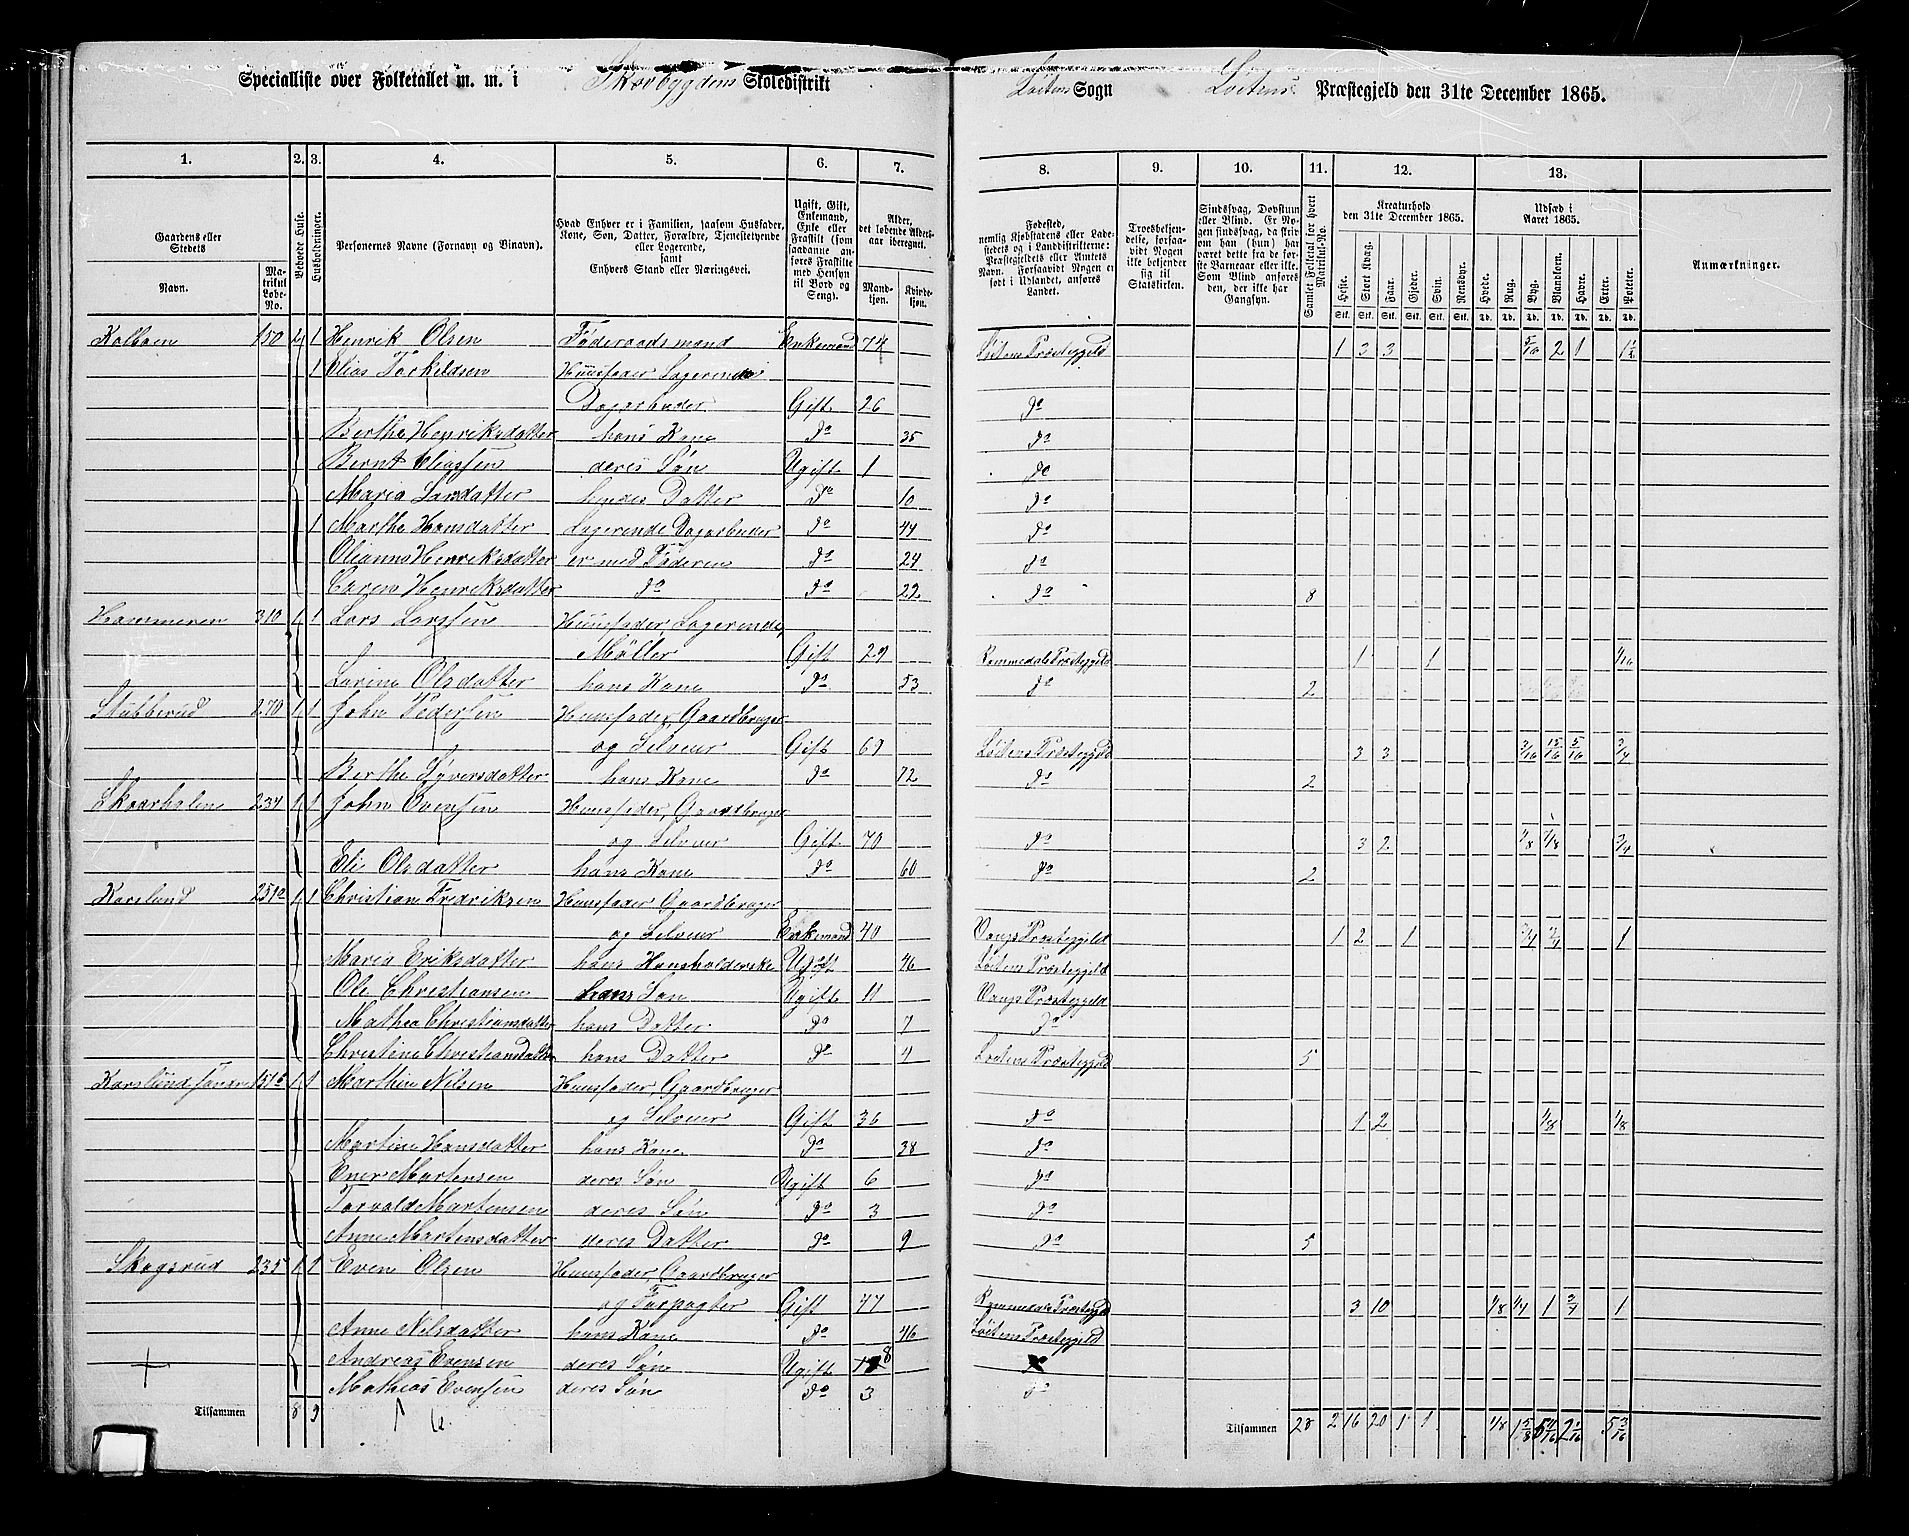 Specialliste over Folketallet m. m. i Skarbygdens Skoledistrikt Løitens Sogn Løitens Præstegjeld den 31te December 1865.
1. 2. 3. 4. 5. 6. 7. 8. 9. 10. 11. 12. 13.
Gaardens eller Stedets
Navn. Matrikul Løbe-No.
Beboede Huse.
Husholdninger.
Personernes Navne (Fornavn og Binavn).
Hvad Enhver er i Familien, saasom Husfader, Kone, Søn, Datter, Forældre, Tjenestetyende eller Logerende, samt Enhvers Stand eller Næringsvei.
Ugift, Gift, Enkemand, Enke eller Fraskilt (som saadanne anføres Fraskilte med Hensyn til Bord og Seng).
Alder, det løbende Aldersaar iberegnet.
Mandkjøn. Kvindekjøn.
Fødested, nemlig Kjøbstadens eller Ladestedets og i Landdistrikterne: Præstegjeldets eller Amtets Navn. Forsaavidt Nogen er født i Udlandet, anføres Landet.
Troesbekjendelse, forsaavidt Nogen ikke bekjender sig til Statskirken.
Sindssvag, Døvstum eller Blind. Er Nogen sindssvag, da skrives om han (hun) har været dette fra de første Barneaar eller ikke. Som Blind anføres den, der ikke har Gangsyn.
Samlet Folketal for hvert Matrikul-No.
Kreaturhold den 31te December 1865.
Heste. Stort Kvæg. Faar. Gjeder. Svin. Rensdyr.
Stk. Stk. Stk. Stk. Stk. Stk.
Udsæd i Aaret 1865.
Hvede. Rug. Byg. Blandkorn. Havre. Erter. Poteter.
Td. Td. Td. Td. Td. Td. Td.
Anmærkninger.
Kolboen 150 1 Henrik Olsen Føderaadsmand Enkemand 74 Løitens Præstegjeld 1 3 3 5/16 2 1 1 1/2
1 Elias Torkildsen Huusfader Logerende
Dagarbeder Gift 26 do
Berthe Henriksdatter hans Kone do 35 do
Bernt Eliassen deres Søn Ugift 1 do
Maria Larsdatter hendes Datter do 10 do
1 Marthe Hansdatter Logerende Dagarbeder do 44 do
Olianna Henriksdatter er med Føderen do 24 do
Caren Henriksdatter do do 22 do 8
Hammeren 310 1 1 Lars Larssen Huusfader, Logerende,
Møller Gift 29 Rommedals Præstegjeld 1 1 1/16
Larine Olsdatter hans Kone do 53 do 2
Stubberud 270 1 1 John Pedersen Huusfader, Gaardbruger
og Selveier Gift 69 Løitens Præstegjeld 3 3 3/16 15/16 5/16 3/4
Berthe Syversdatter hans Kone do 72 do 2
Skaarholen 234 1 1 John Evensen Huusfader, Gaardbruger
og Selveier Gift 70 do 3 2 1/8 7/8 3/4
Eli Olsdatter hans Kone do 60 do 2
Korslund 251a 1 1 Christian Fredriksen Huusfader Gaardbruger
og Selveier Enkemand 40 Vangs Præstegjeld 1 2 1 3/4 1
Maria Eriksdatter hans Huusholderske Ugift 46 Løitens Præstegjeld
Ole Christiansen hans Søn Ugift 11 Vangs Præstegjeld
Mathea Christiansdatter hans Datter do 7 do
Christine Christiansdatter hans Datter do 4 Løitens Præstegjeld 5
1 1 Marthin Nilsen Huusfader, Gaardbruger
og Selveier Gift 36 do 1 2 1/8 1/8
Martine Hansdatter hans Kone do 38 do
Ener Martensen deres Søn Ugift 6 do
Torvald Martensen deres Søn do 3 do
Anne Martensdatter deres Datter do 9 do 5
Skogsrud 235 1 1 Even Olsen Huusfader, Gaardbruger
og Forpagter Gift 47 Rommedals Præstegjeld 3 10 1/8 1/4 1 3/4 1
Anne Nilsdatter hans Kone do 46 Løitens Præstegjeld
Andreas Evensen deres Søn Ugift 8
Mathias Evensen deres Søn do 3 do
Tilsammen 8 9 Tilsammen 28 2 16 20 1 1 1/8 1 5/8 5 3/16